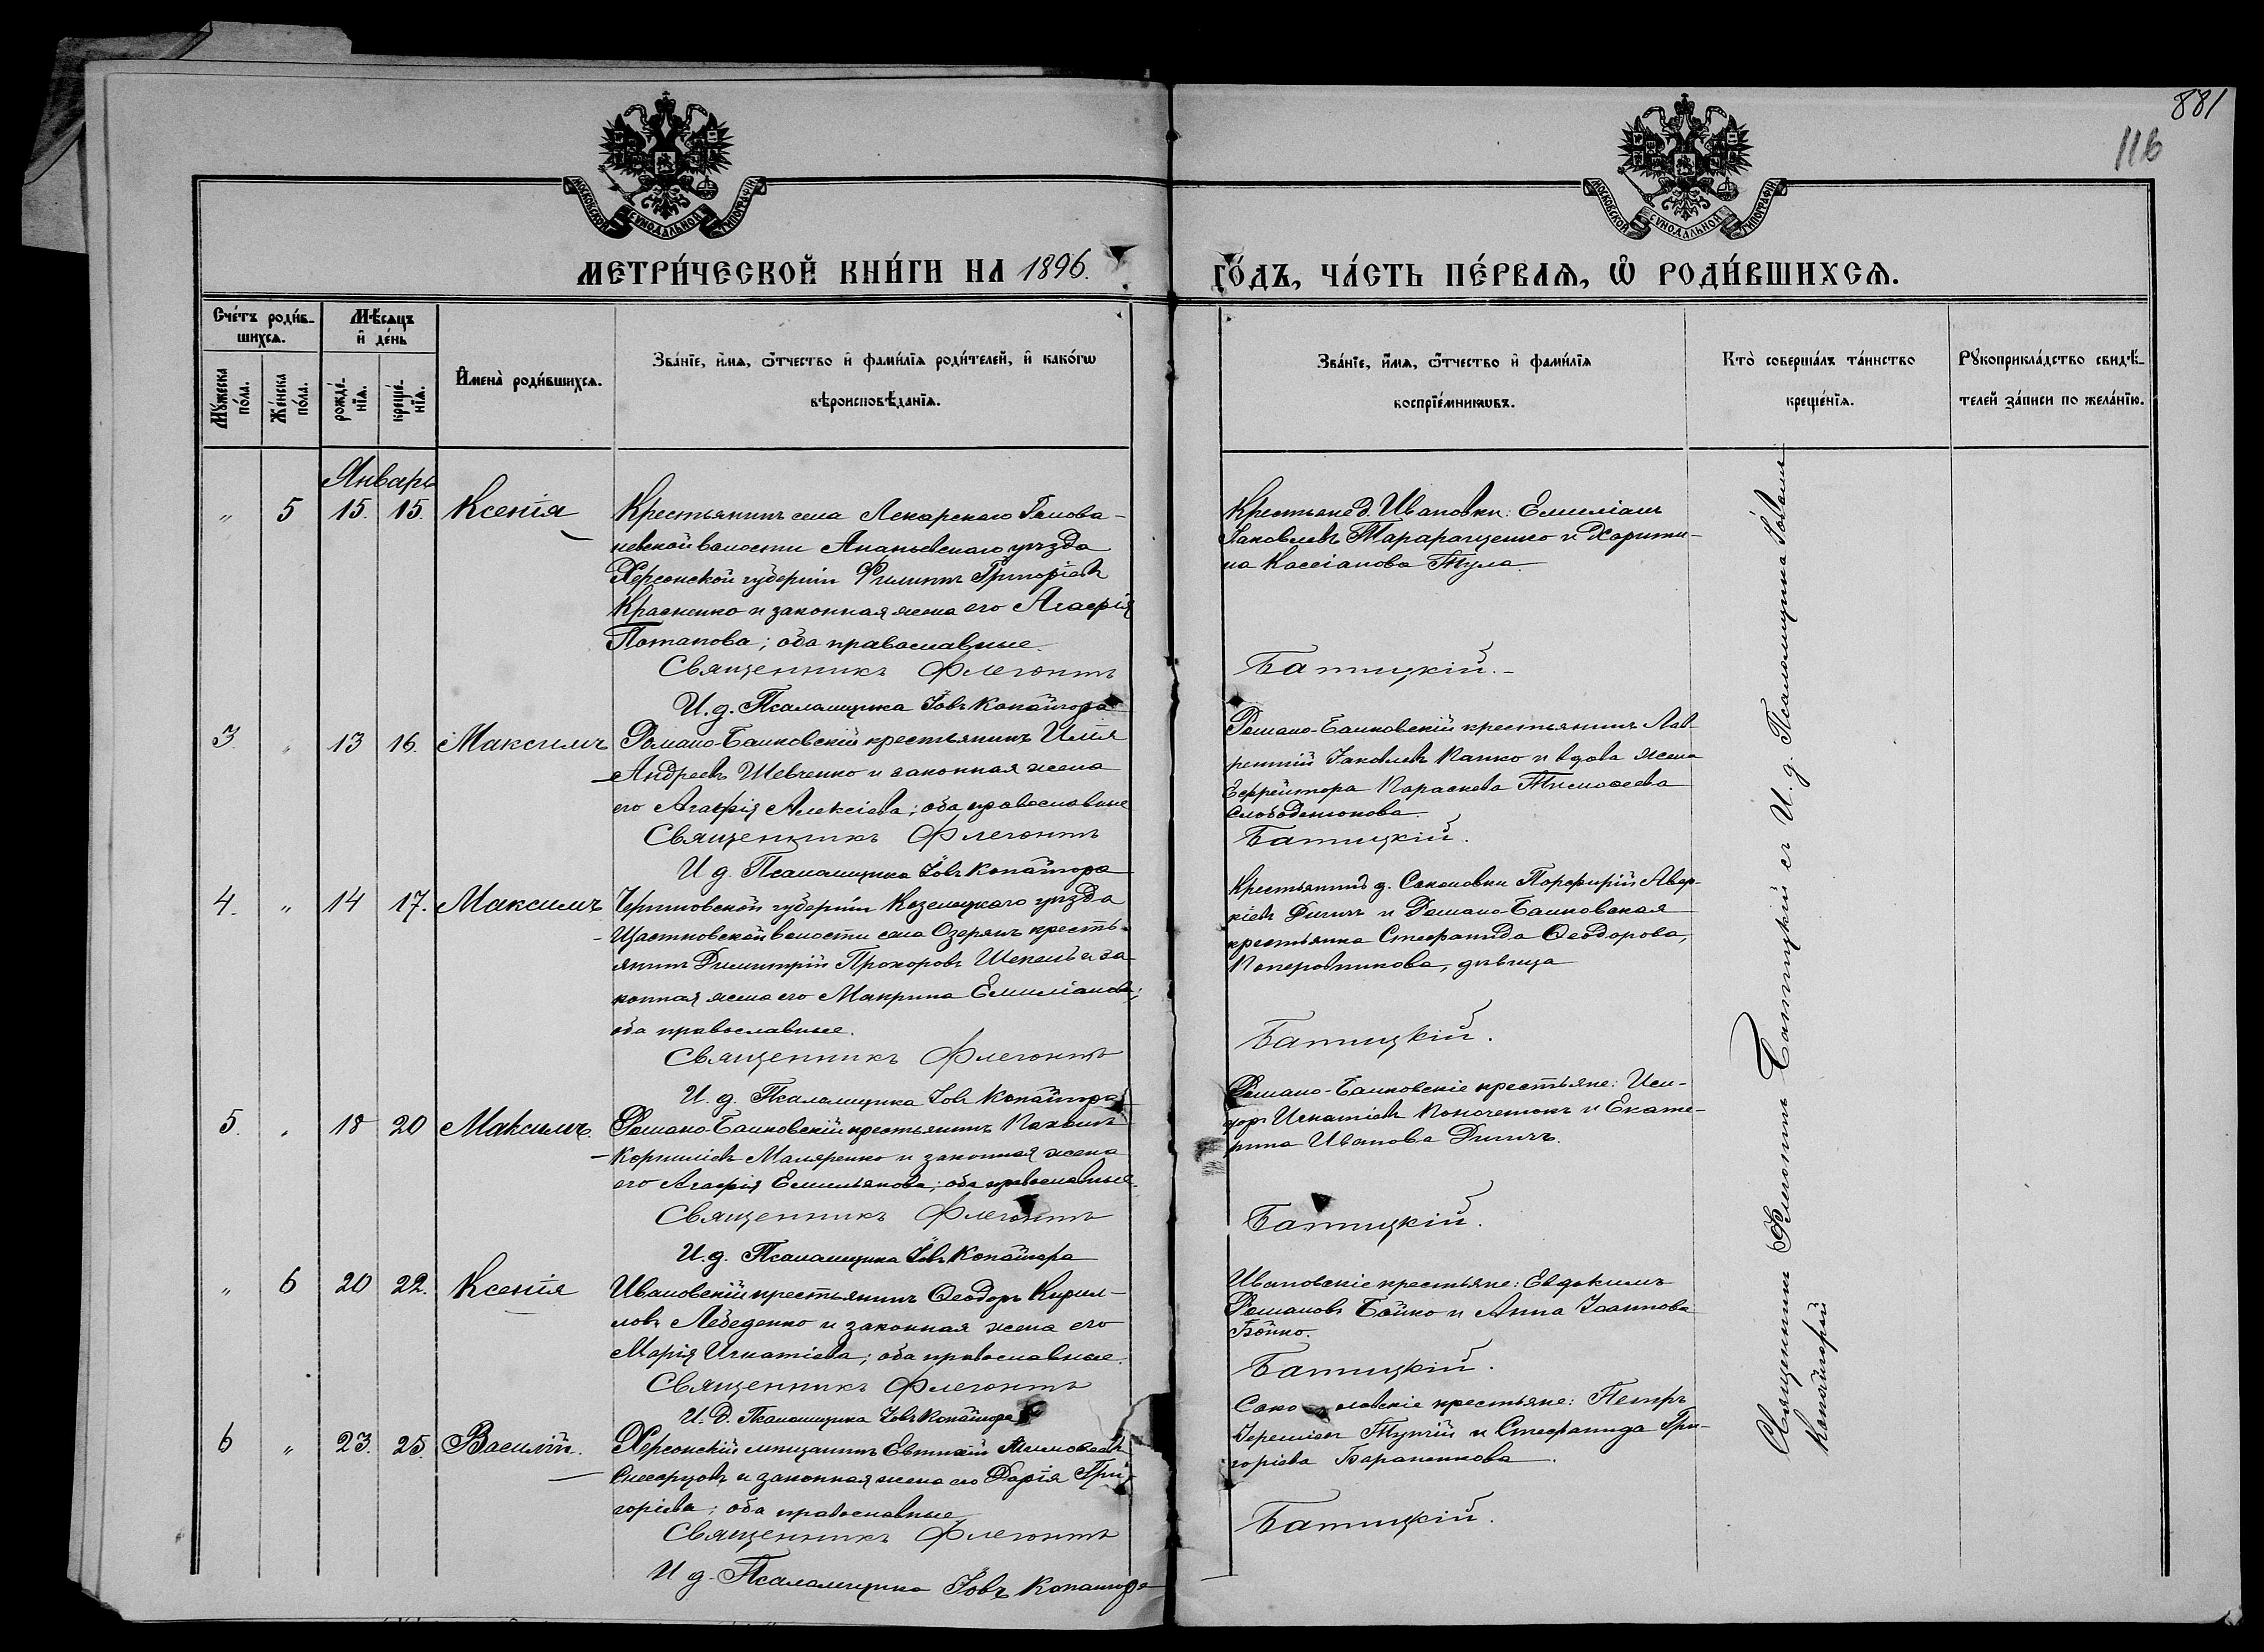 881
116
МОСКОВСКОЙ СѴНОДАЛЬНОЙ ТИПОГРАФІИ
МОСКОВСКОЙ СѴНОДАЛЬНОЙ ТИПОГРАФІИ
МЕТРИ́ЧЕСКОЙ КНИ́ГИ НА 1896.
ГО́ДЪ, ЧА́СТЬ ПЕ́РВАѦ, Ѡ҆ РОДИ́ВШИХСѦ.
Сче́тъ роди́в-
шихсѧ.
Мѣ́сѧцъ
и҆ де́нь
Мꙋ́жеска
по́ла.
Же́нска
по́ла.
рожде́-
нїѧ.
креще́-
нїѧ.
И҆мена̀ роди́вшихсѧ.
Зва́нїе, и҆́мѧ, ѻ҆́тчество и҆ фами́лїѧ роди́телей, и҆ како́гѡ
вѣроисповѣ́данїѧ.
Зва́нїе, и҆́мѧ, ѻ҆́тчество и҆ фами́лїѧ
воспрїе́мникѡвъ.
Кто̀ соверша́лъ та́инство
креще́нїѧ.
Рꙋкоприкла́дство свидѣ́-
телей за́писи по жела́нїю.
Январь
" 5 15. 15. Ксенія
Крестьянинъ села Лекарскаго
невской волости Ананьевскаго уѣзда
Херсонской губерніи Филиппъ Григоріевъ
Красненко и законная жена его Агафія
Потапова; оба православные.
Священникъ Флегонтъ
И. д. Псаломщика Іовъ Копайгора
Крестьяне д. Ивановки: Емиліанъ
Іаковлевъ Таращенко и Харити-
на Кассіанова Тула.
Батицкій.
3. " 13 16. Максимъ
Романо-Балковскій крестьянинъ Илія
Андреевъ Шевченко и законная жена
его Агафія Алексіева; оба православные
Священникъ Флегонтъ
И д. Псаломщика Іовъ Копайгора
Романо-Балковскій крестьянинъ Лав-
рентій Іаковлевъ Папко и вдова жена
Ефрейтора Параскева Тимофеева
Слободенюкова.
Батицкій.
4. " 14 17. Максимъ
Черниговской губерніи Козелецкаго уѣзда
волости села Озерянъ кресть-
янинъ Димитрій Прохоровъ Шепель и за-
конная жена его Макрина Емиліанова;
оба православные.
Священникъ Флегонтъ
И. д. Псаломщика Іовъ Копайгора
Крестьянинъ д. Соколовки Порфирій Авер-
кіевъ Дигичъ и Романо-Балковская
крестьянка Стефанида Ѳеодорова,
дѣвица
Батицкій.
5. " 18 20 Максимъ.
Романо-Балковскій крестьянинъ
Корниліевъ Маляренко и законная жена
его Агафія Емельянова; оба православные.
Священникъ Флегонтъ
И. д. Псаломщика Іовъ Копайгора
Романо-Балковскіе крестьяне: Иси-
доръ Игнатіевъ и Екате-
рина Иванова Дигичъ.
Батицкій.
" 6 20 22. Ксенія
Ивановскій крестьянинъ Ѳеодоръ Кирил-
ловъ Лебеденко и законная жена его
Марія Игнатіева; оба православные.
Священникъ Флегонтъ
И. д. Псаломщика Іовъ Копайгора
Ивановскіе крестьяне: Евдокимъ
Романовъ Бойко и Анна Іоаннова
Бойко.
Батицкій.
6 " 23. 25. Василій.
Херсонскій мѣщанинъ Евтихій
и законная жена его Дарія Гри-
горіева; оба православные
Священникъ Флегонтъ
И д. Псаломщика Іовъ Копайгора
крестьяне: Петръ
Іереміевъ и Стефанида Гри-
горіева Бараненкова.
Батицкій.
Священникъ Флегонтъ Батицкій съ И. д. Псаломщика Іовомъ
Копайгорой